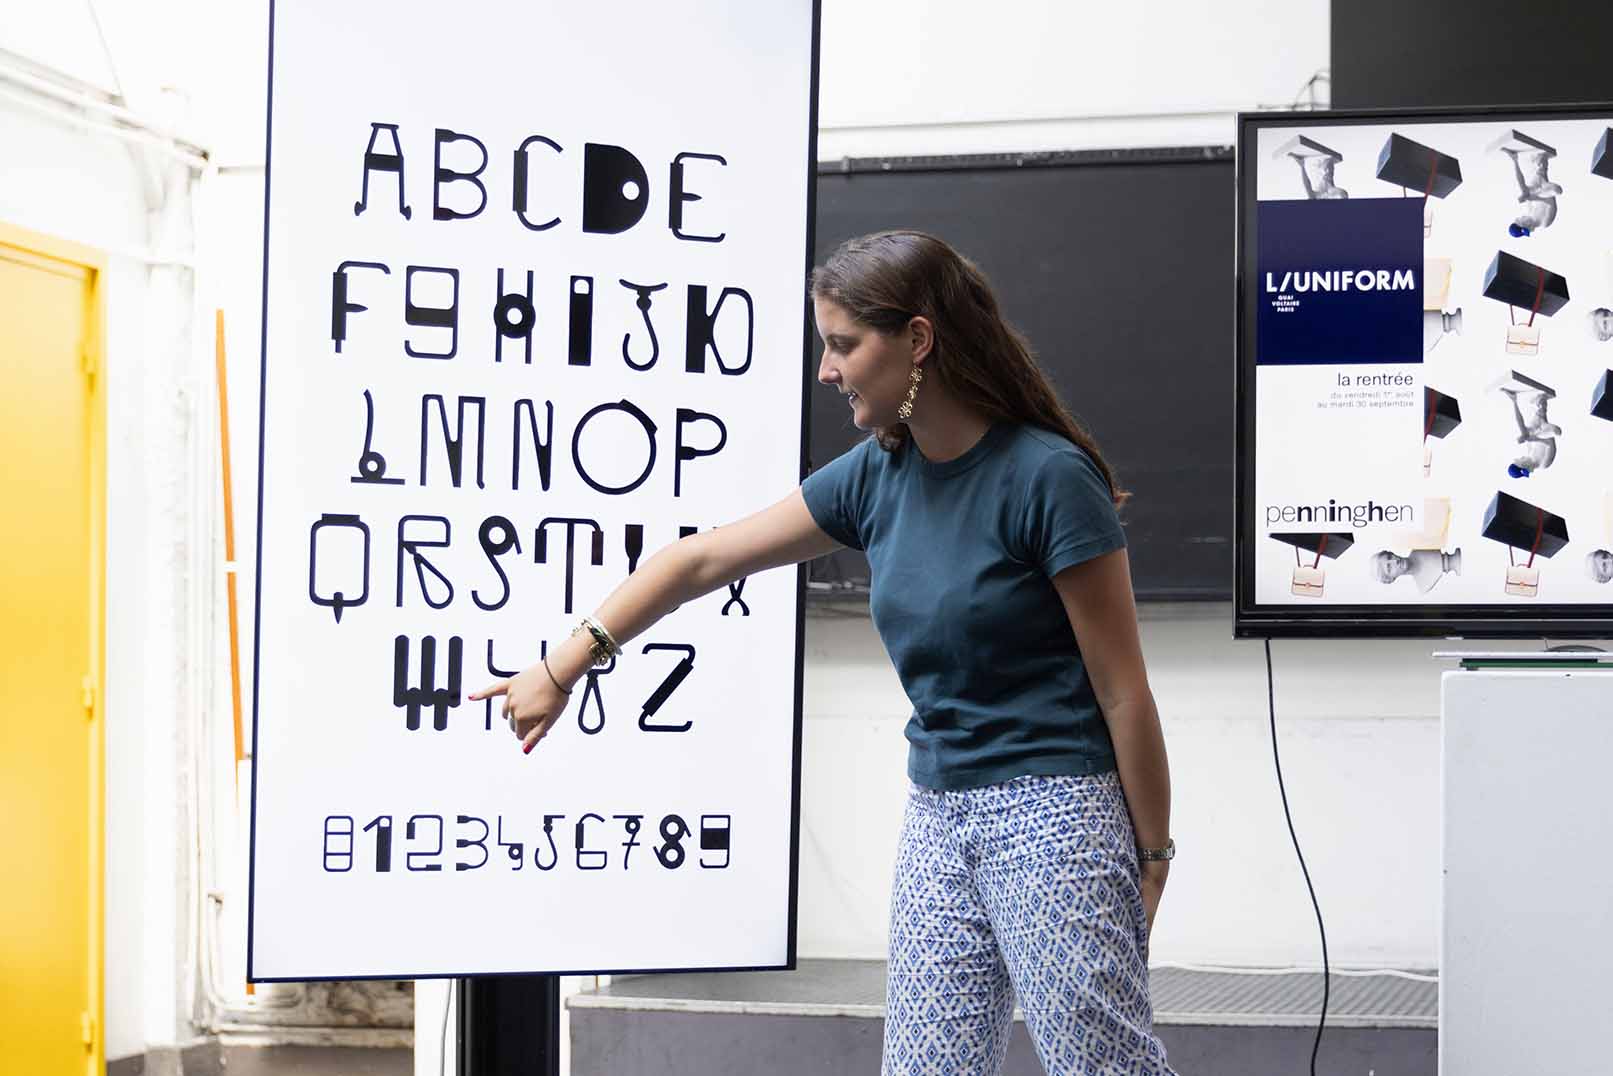 ABCDE
FGHIJK
LMNOP
QRSTUVX
WYZ
0123456789
L/UNIFORM
QUAI
VOLTAIRE
PARIS
la rentrée
du vendredi 1er août
au mardi 30 septembre
penninghen